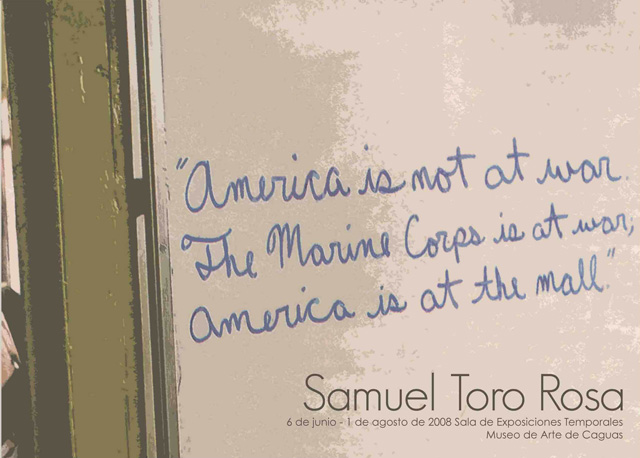 "America is not at war.
The Marine Corps is at war,
America is at the mall."
Samuel Toro Rosa
6 de junio - 1 de agosto de 2008 Sala de Exposiciones Temporales
Museo de Arte de Caguas